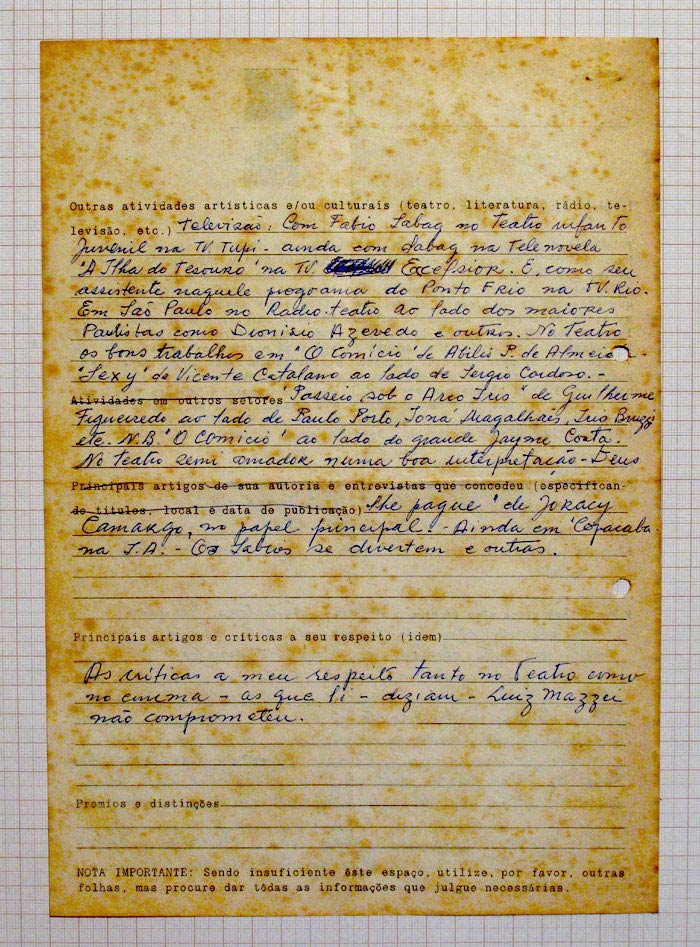 Outras atividades artísticas e/ou culturais (teatro, literatura, rádio, te-
levisão, etc.) Televisão: Com Fabio Sabag no Teatro infanto
Juvenil na TV. Tupí - ainda com Sabag na Telenovela
"A Ilha do Tesouro" na TV. Excelsior. E, como seu
assistente naquele programa do Ponto Frio na TV. Rio.
Em São Paulo no Radio-teatro ao lado dos maiores
Paulistas como Dionisio Azevedo e outros. No Teatro
os bons trabalhos em "O Comício" de Abilio P. de Almeida -
"Sexy" de Vicente Catalano ao lado de Sergio Cardoso. -
Atividades em outros setores "Passeio sob o Arco Iris" de Guilherme
Figueiredo ao lado de Paulo Porto, Ioná Magalhães, Iris Bruzzi
etc. N.B. "O Comício" ao lado do grande Jayme Costa.
No Teatro semi amador numa boa interpretação - Deus
Principais artigos de sua autoria e entrevistas que concedeu (especifican-
do títulos, local e data de publicação) lhe pague" de Joracy
Camargo, no papel principal - Ainda em "Copacaba
na S.A. - Os Sabios se divertem e outras.
Principais artigos e críticas a seu respeito (idem)
As críticas a meu respeito tanto no Teatro como
no cinema - as que li - diziam - Luiz Mazzei
não comprometeu.
Premios e distinções
NOTA IMPORTANTE: Sendo insuficiente êste espaço, utilize, por favor, outras
folhas, mas procure dar tôdas as informações que julgue necessárias.